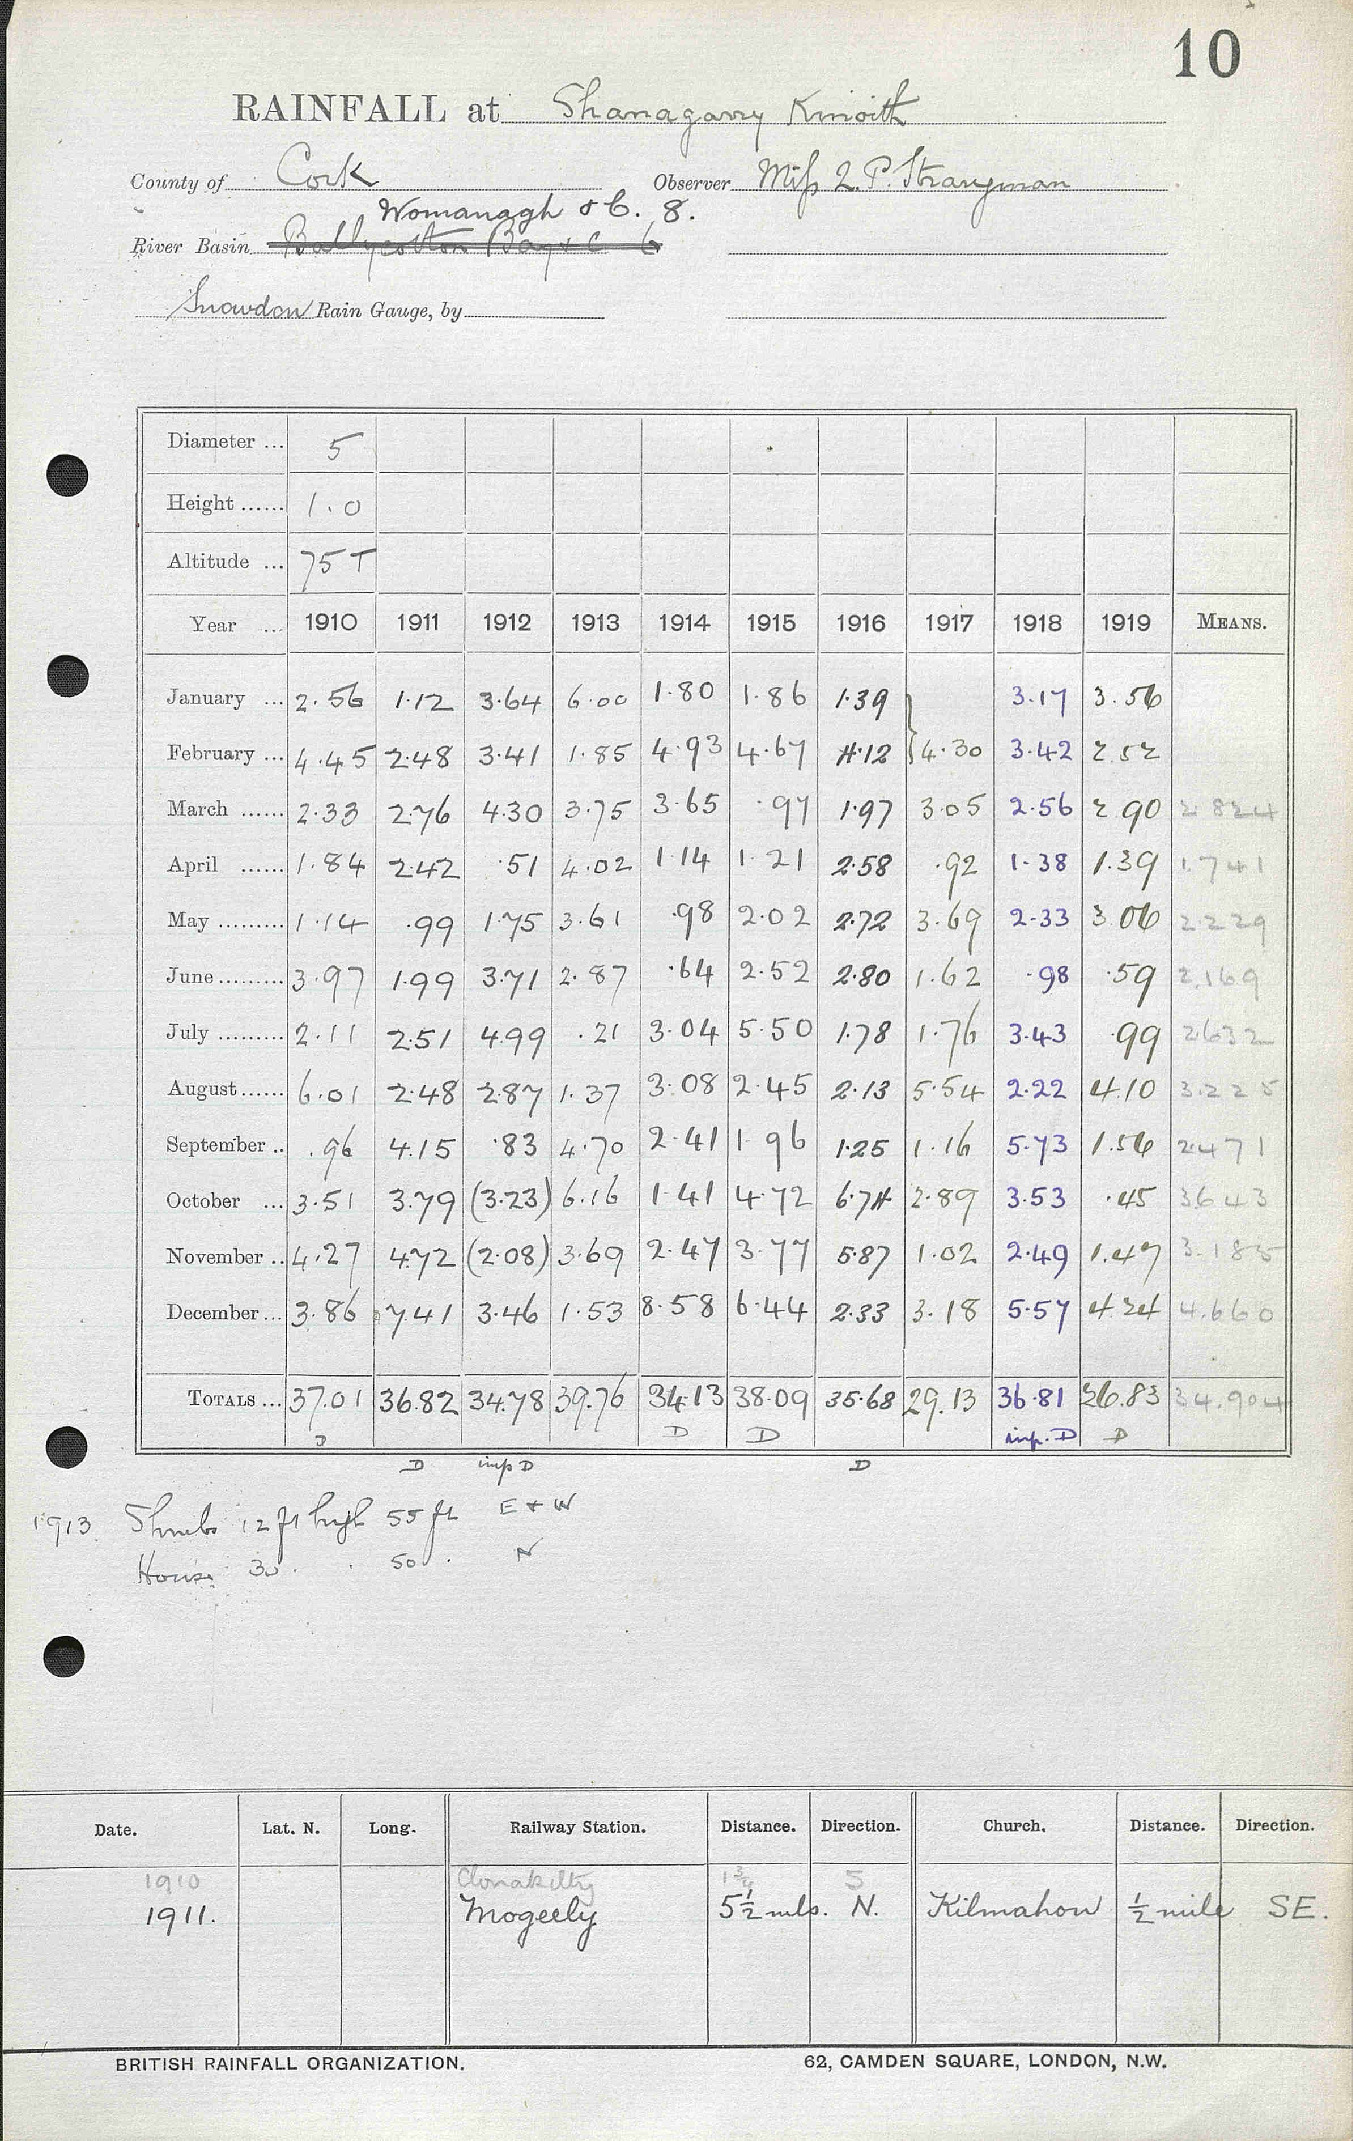 10
RAINFALL at Shanagarry Kinoith
County of Cork Observer Miss L. P. Strangman
Womanagh &c. 8.
River Basin Ballycotton Bay &c 6
Snowdon Rain Gauge, by
Diameter ... 5
Height ...... 1.0
Altitude ... 75 T
Year ... 1910 1911 1912 1913 1914 1915 1916 1917 1918 1919 MEANS.
January ... 2.56 1.12 3.64 6.00 1.80 1.86 1.39 } 3.17 3.56
February ... 4.45 2.48 3.41 1.85 4.93 4.67 4.12 4.30 3.42 2.52
March ...... 2.33 2.76 4.30 3.75 3.65 .97 1.97 3.05 2.56 2.90 2.824
April ...... 1.84 2.42 .51 4.02 1.14 1.21 2.58 .92 1.38 1.39 1.741
May ......... 1.14 .99 1.75 3.61 .98 2.02 2.72 3.69 2.33 3.06 2.229
June ......... 3.97 1.99 3.71 2.87 .64 2.52 2.80 1.62 .98 .59 2.169
July ......... 2.11 2.51 4.99 .21 3.04 5.50 1.78 1.76 3.43 .99 2.632
August ...... 6.01 2.48 2.87 1.37 3.08 2.45 2.13 5.54 2.22 4.10 3.225
September .. .96 4.15 .83 4.70 2.41 1.96 1.25 1.16 5.73 1.56 2.471
October ... 3.51 3.79 (3.23) 6.16 1.41 4.72 6.74 2.89 3.53 .45 3.643
November .. 4.27 4.72 (2.08) 3.69 2.47 3.77 5.87 1.02 2.49 1.47 3.185
December ... 3.86 7.41 3.46 1.53 8.58 6.44 2.33 3.18 5.57 4.24 4.660
TOTALS ... 37.01 36.82 34.78 39.76 34.13 38.09 35.68 29.13 36.81 26.83 34.904
D D D imp. D D
D imp D D
1913 Shrubs 12 ft high 55 ft E + W
House 30 . 50 . N
Date. Lat. N. Long. Railway Station. Distance. Direction. Church. Distance. Direction.
1910 Clonakilty 1 3/4 S
1911. Mogeely 5 1/2 mls. N. Kilmahon 1/2 mile SE.
BRITISH RAINFALL ORGANIZATION. 62, CAMDEN SQUARE, LONDON, N.W.